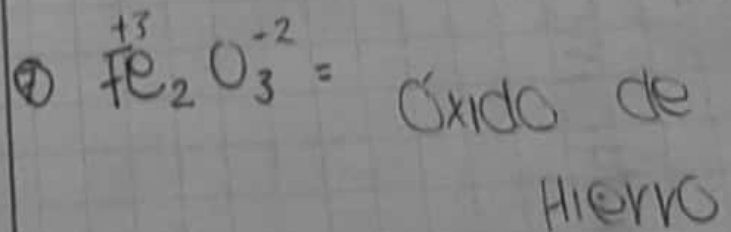 ⑦ Fe₂⁺³ O₃⁻² = Óxido de
Hierro